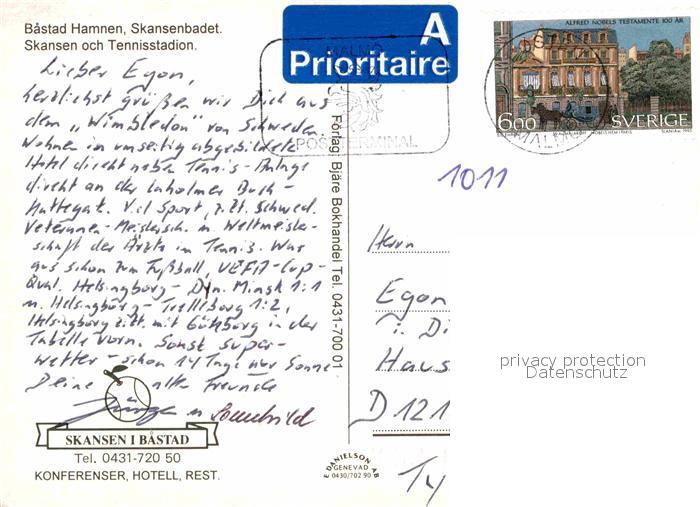 Båstad Hamnen, Skansenbadet.
Skansen och Tennisstadion.
A
Prioritaire
MALMÖ
POSTTERMINAL
ALFRED NOBELS TESTAMENTE 100 ÅR
600
SVERIGE
MALMÖ
Lieber Egon,
herzlichst grüßen wir Dich aus
dem „Wimbledon" von Schweden.
Wohnen im umseitig abgebildeten
Hotel direkt neben Tennis-Anlage
direkt an der Laholmer Bucht-
Kattegat. Viel Sport, z.Zt. Schwed.
Veteranen-Meistersch. u. Weltmeister-
schaft der Ärzte im Tennis. War
aus schon zum Fußball, UEFA-Cup-
Qual. Helsingborg - Dyn. Minsk 1:1
u. Helsingborg - Trelleborg 1:2,
Helsingborg z.Zt. mit Göteborg in der
Tabelle vorn. Sonst super-
wetter - schon 14 Tage nur Sonne
Deine alten Freunde
Jürgen u
SKANSEN I BÅSTAD
Tel. 0431-720 50
KONFERENSER, HOTELL, REST.
Förlag: Bjäre Bokhandel Tel. 0431-700 01
DANIELSON AB
GENEVAD
0430/702 90
1011
Herrn
Egon
Haus
D 121
privacy protection
Datenschutz